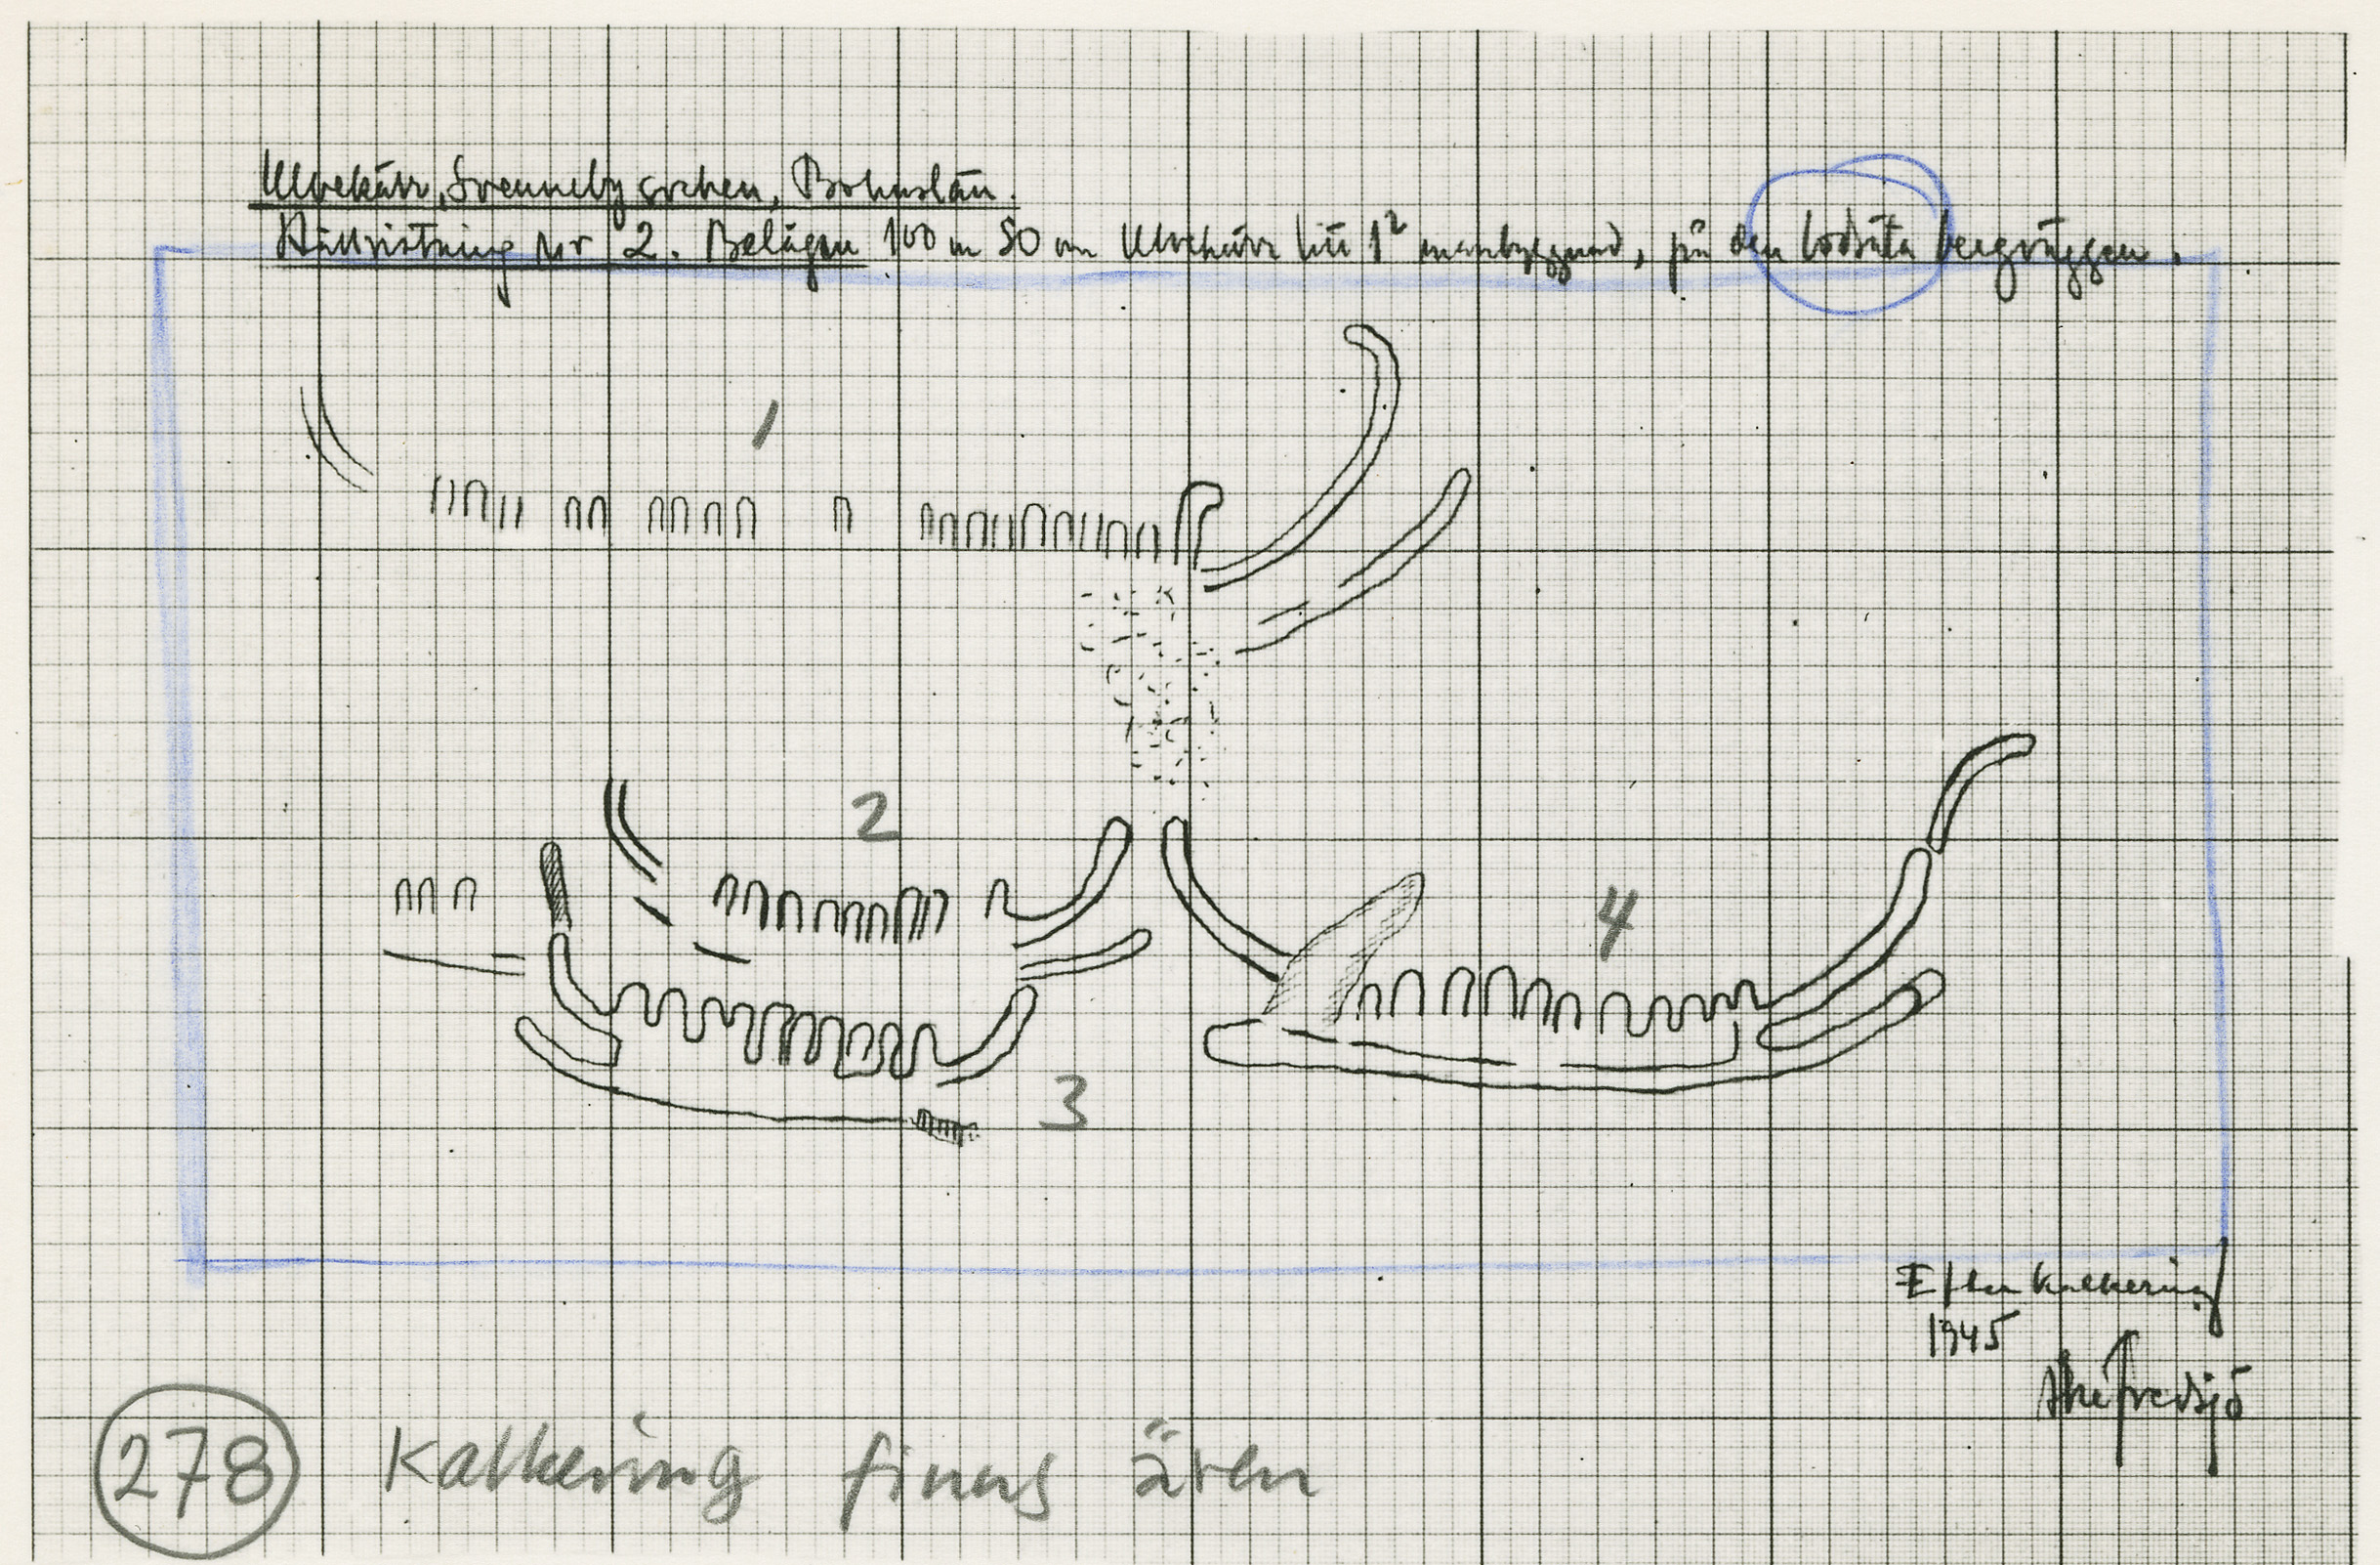 Ulvekärr, Svenneby socken, Bohuslän.
Hällristning nr 2. Belägen 100 m SO om Ulvekärr till 1² manbyggnad, på den lodräta bergväggen.
1
2
4
3
Efter kalkering
1945
Åke Fredsjö
278 Kalkering finns även